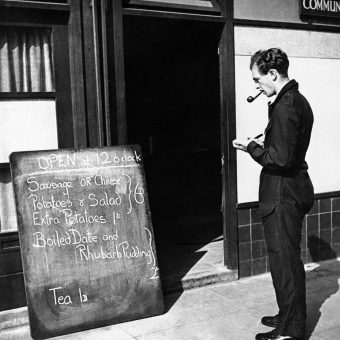 COMMUN
OPEN at 12 o'clock
Sausage or Cheese
Potatoes & Salad } 6
Extra Potatoes 1D
Boiled Date and
Rhubarb Pudding } 2
Tea 1D